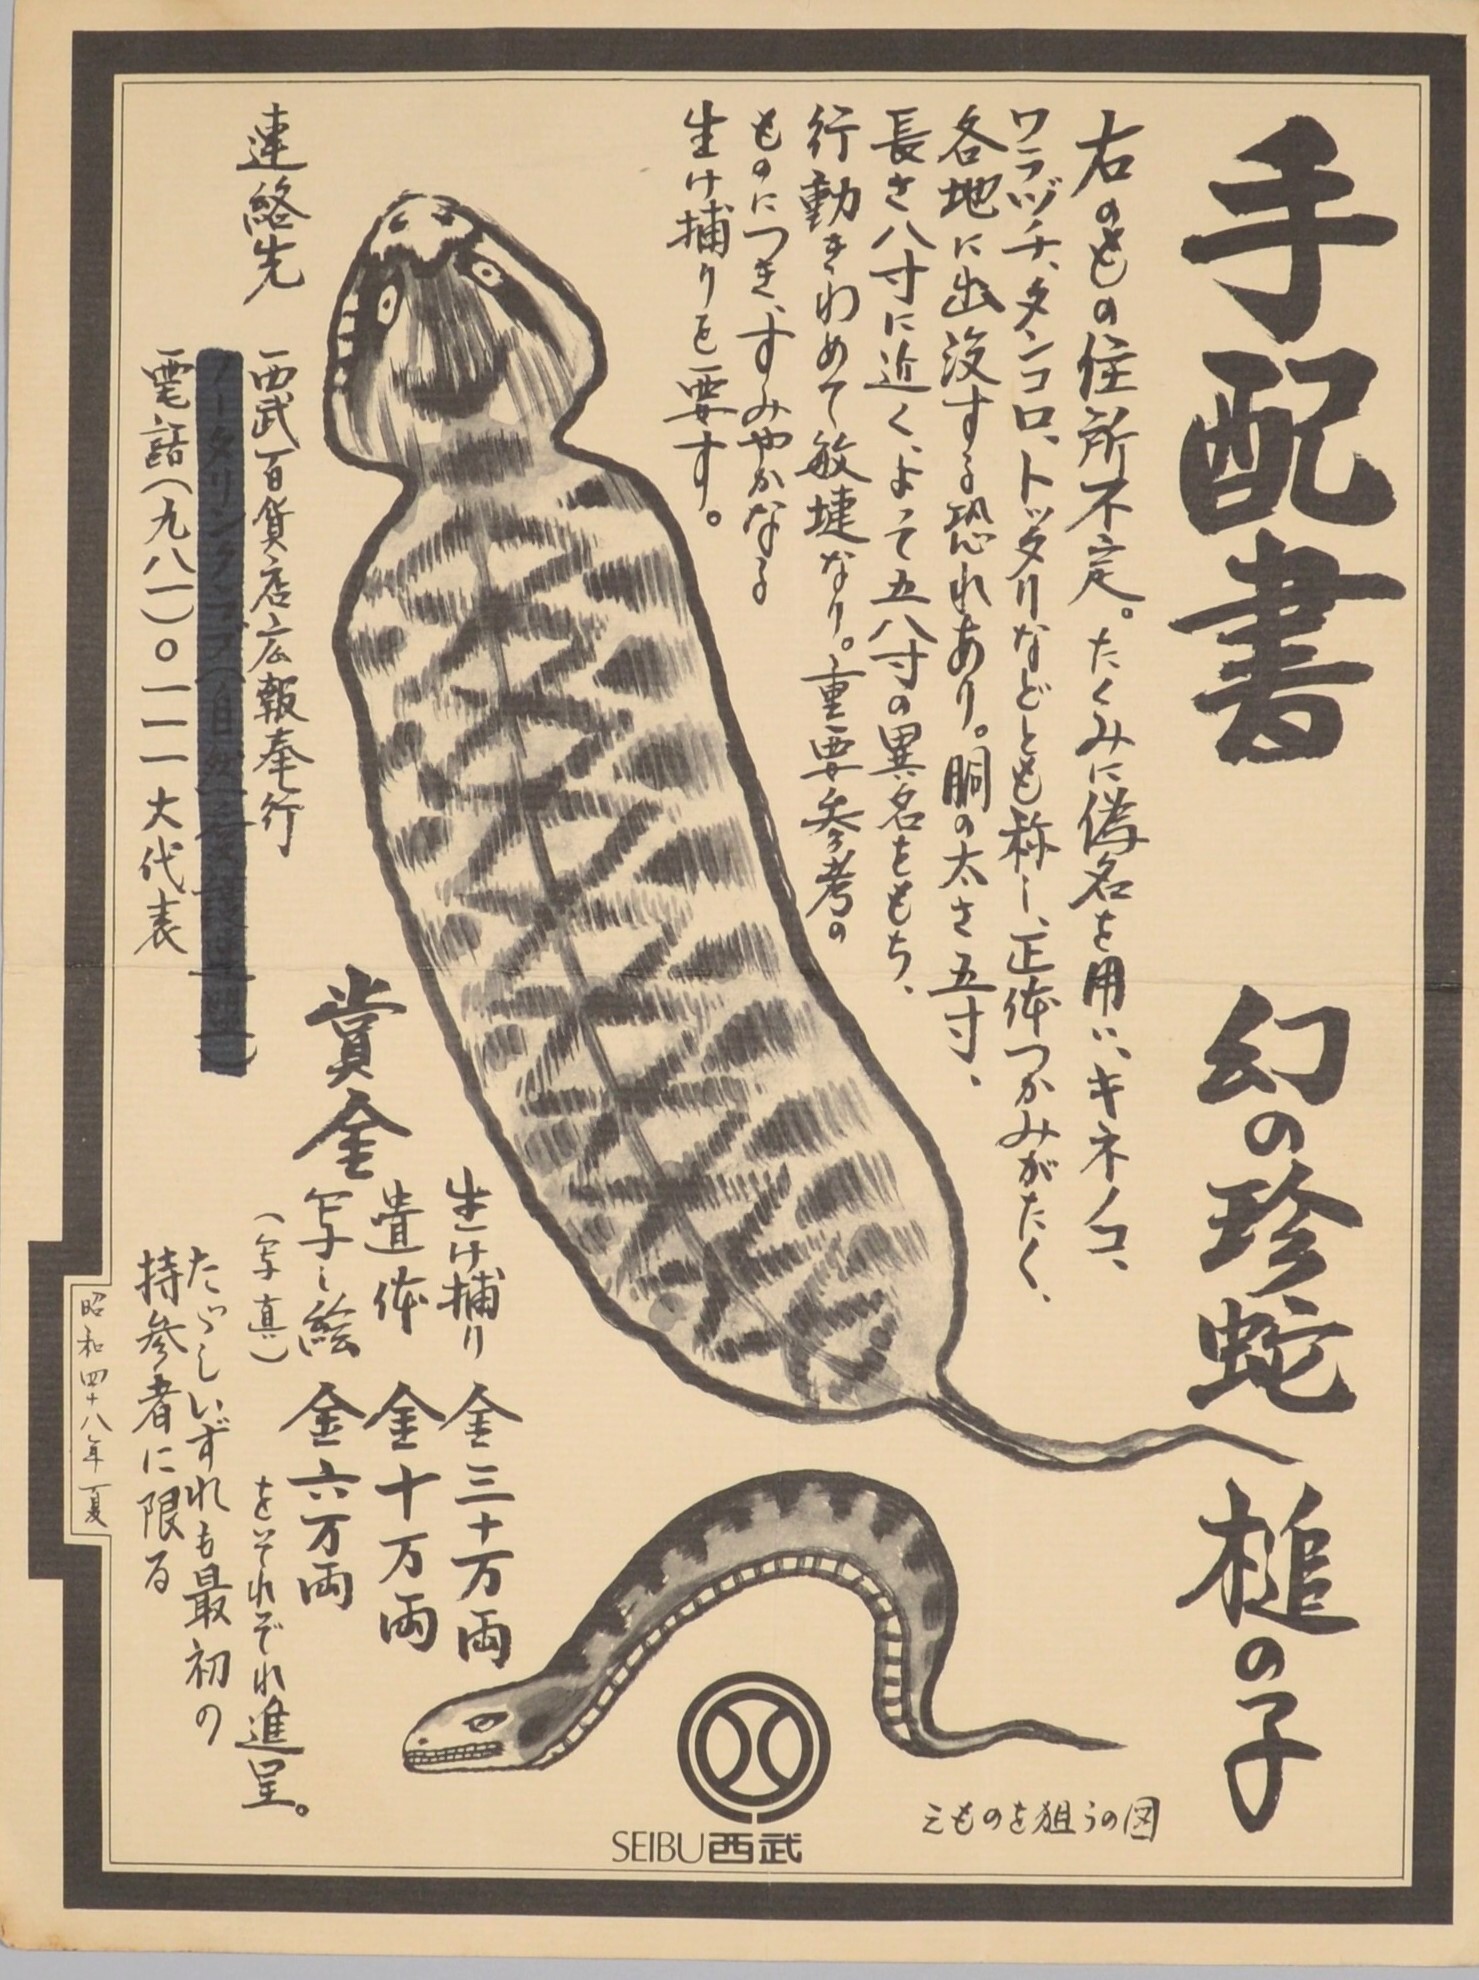 手配書
幻の珍蛇 槌の子
右のもの住所不定。たくみに偽名を用い、キネノコ、
ワラヅチ、タンコロ、トッタリなどとも称し、正体つかみがたく、
各地に出没する恐れあり。胴の太さ五寸、
長さ八寸に近く、よって五八寸の異名をもち、
行動きわめて敏捷なり。重要参考の
ものにつき、すみやかなる
生け捕りを要す。
賞金
生け捕り 金三十万両
遺体 金十万両
写し絵 金六万両
(写真) をそれぞれ進呈。
たゞしいずれも最初の
持参者に限る
連絡先
西武百貨店広報奉行
電話(九八一)〇一一一大代表
昭和四十八年夏
えものを狙うの図
SEIBU西武